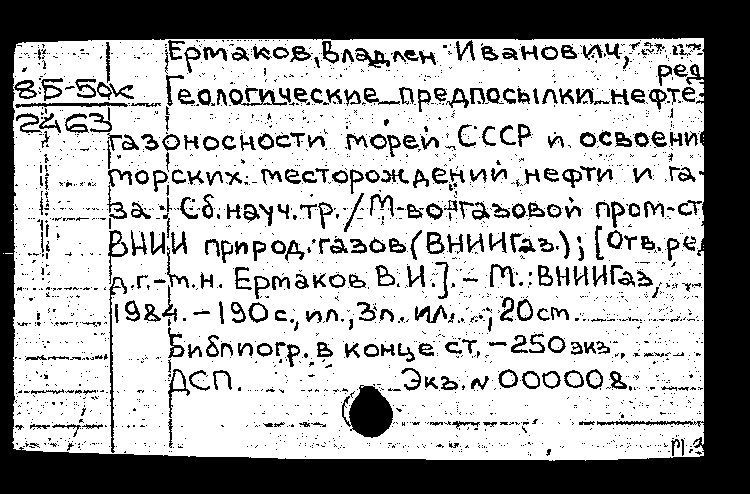 Ермаков, Владлен Иванович,
ред
85-50к
Геологические предпосылки нефте-
2463
газоносности морей СССР и освоени
морских месторождений нефти и га-
за: Сб.науч.тр./М-во газовой пром-ст
ВНИИ природ. газов (ВНИИГаз.); [Отв.ре
д.г.-м.н. Ермаков В.И.]. - М.: ВНИИГаз,
1984. - 190 с., ил., 3л. ил. ; 20 см.
Библиогр. в конце ст. - 250 экз.
ДСП. Экз. N 000008.